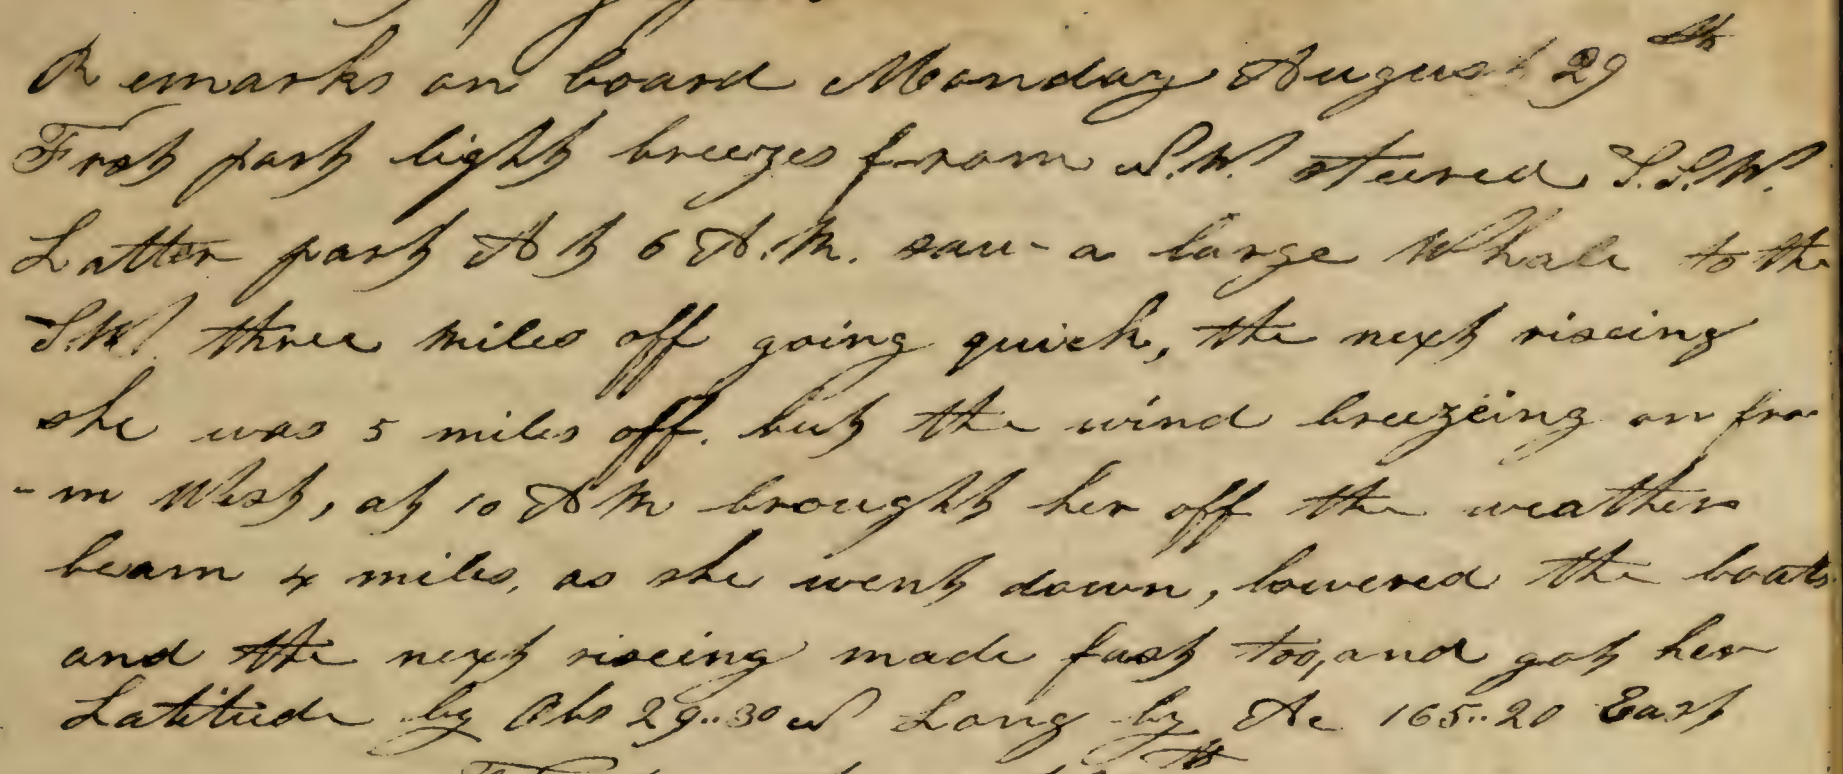 Remarks on board Monday August 29th
Frst part light breezes from S.W. steered S.S.W.
Latter part At 6 A.M. saw a large Whale to the
S.W. three miles off going quick, the next riseing
she was 5 miles off. but the wind breezeing on fro
-m West, at 10 AM brought her off the weather
beam 4 miles, as she went down, lowered the boats
and the next riseing made fast too, and got her
Latitude by Obs 29..30 S Long by Ac 165..20 East